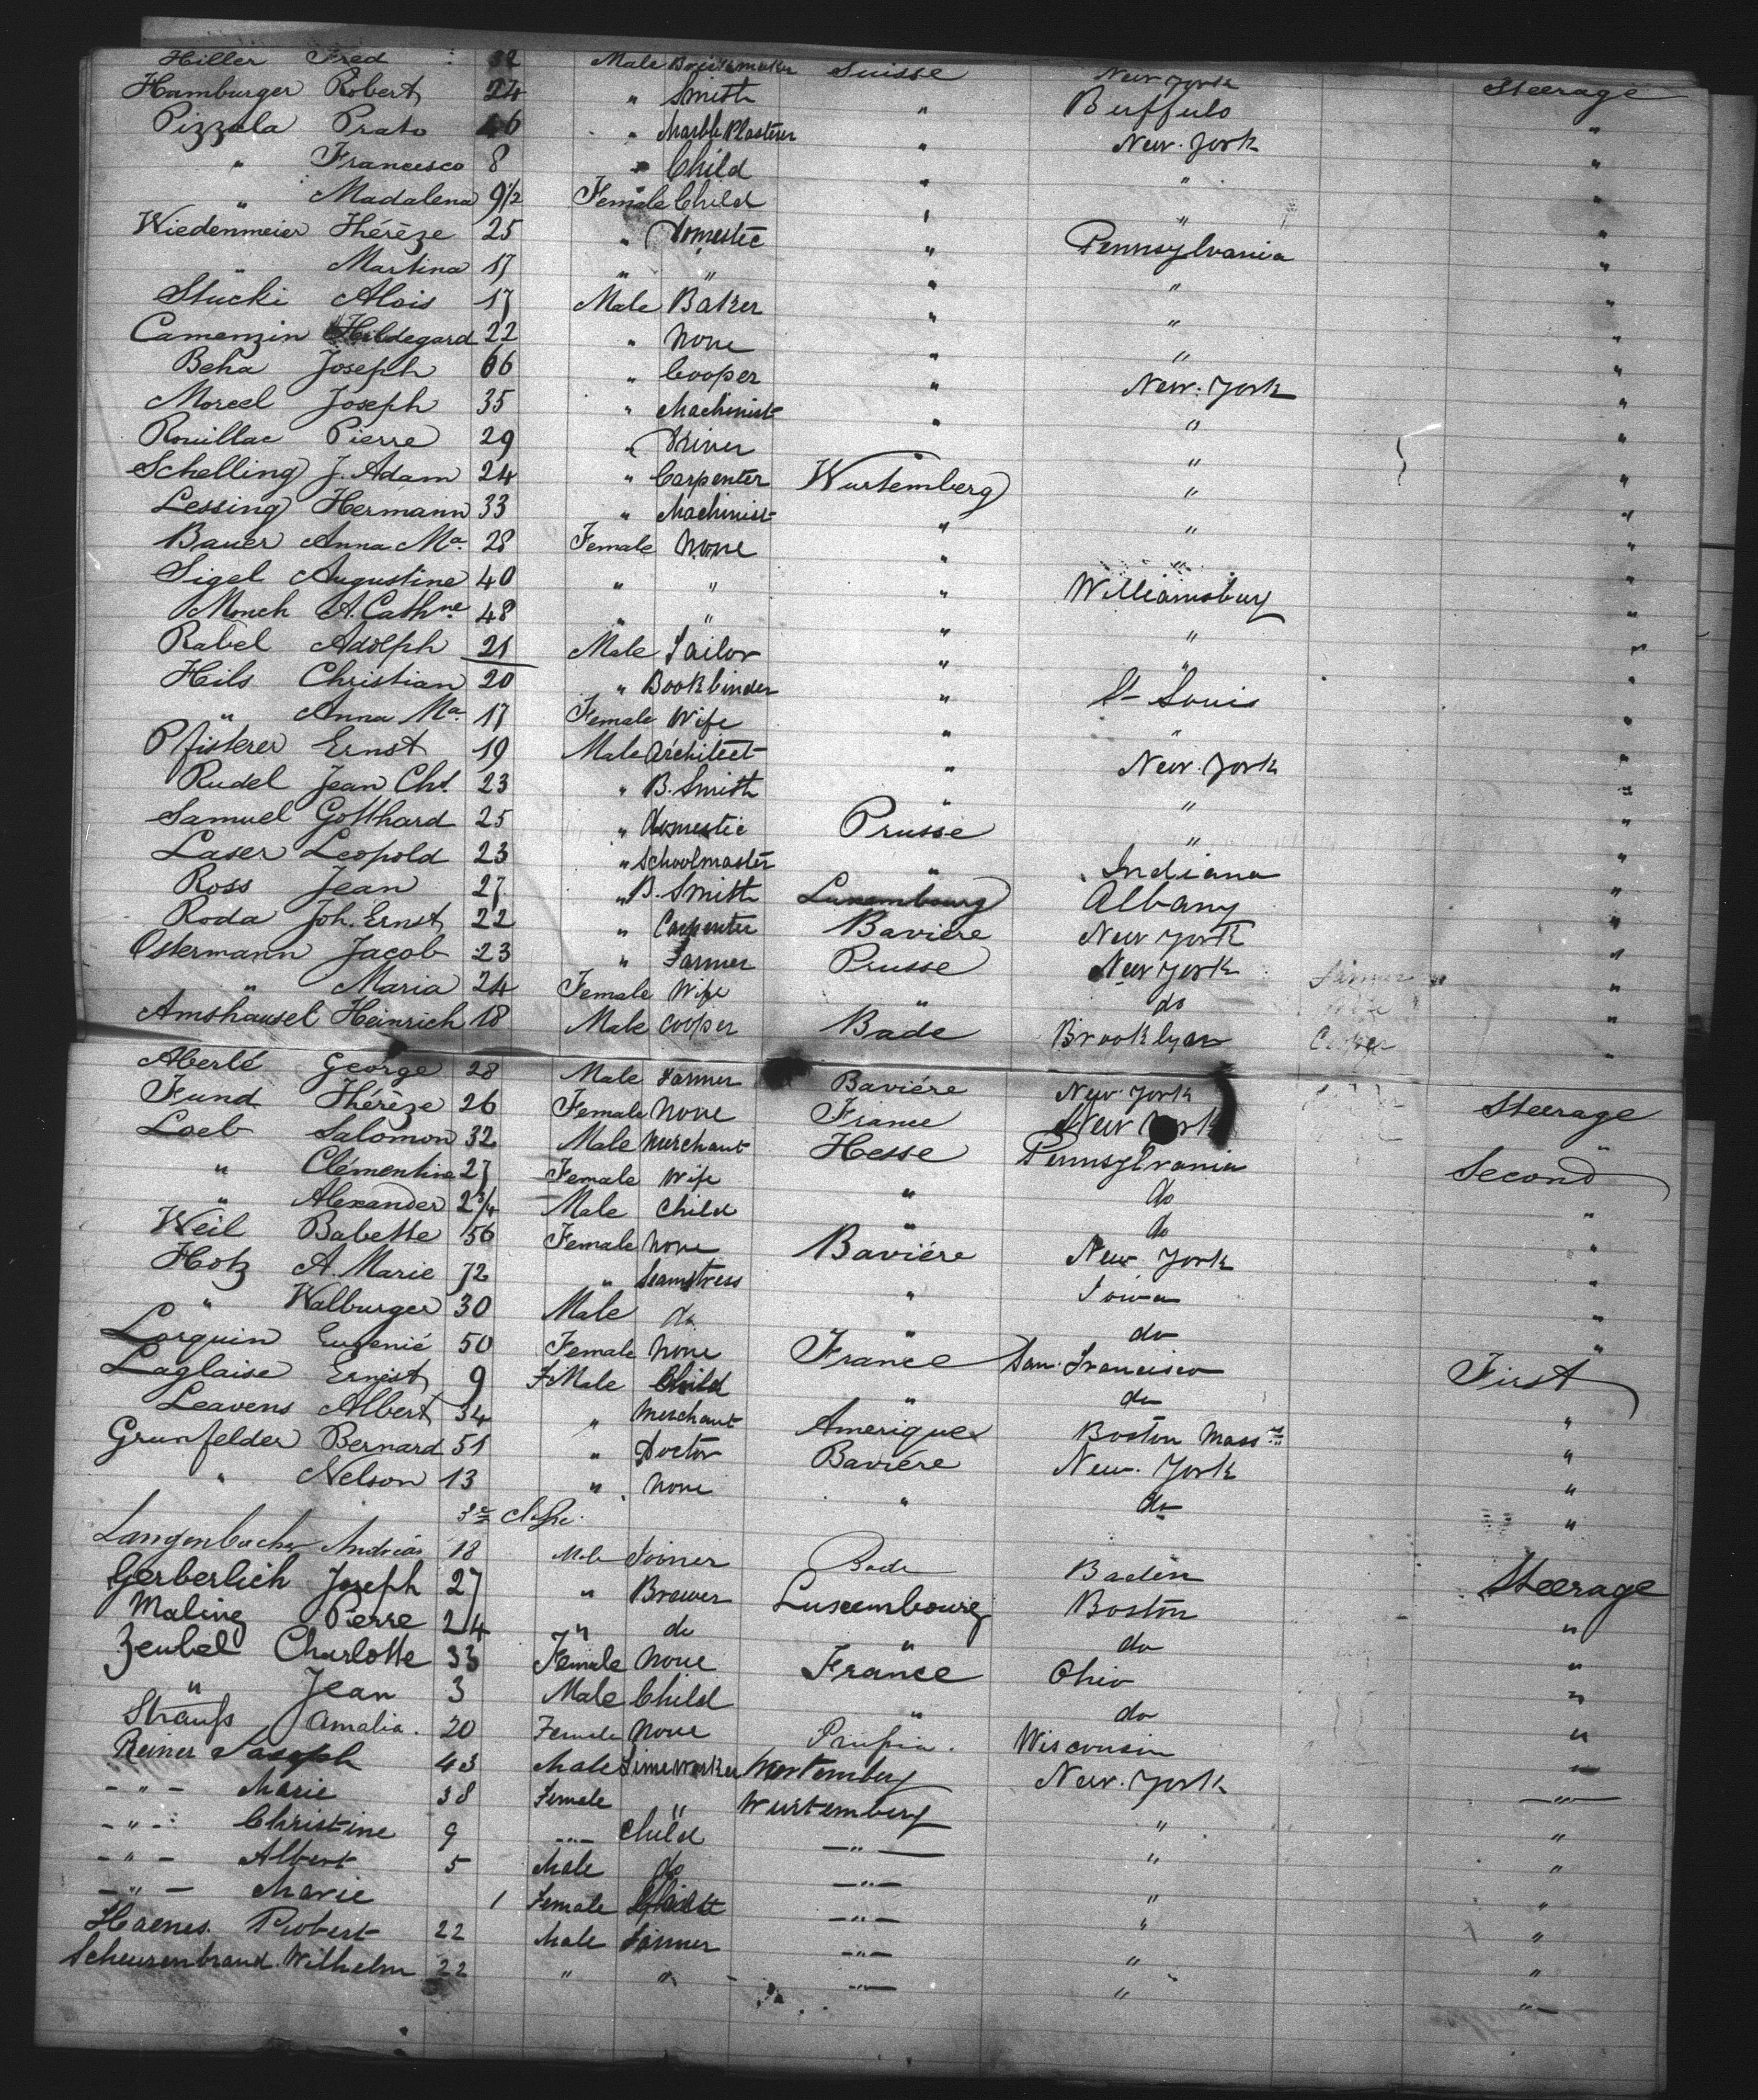 Hiller Fred 32 Male Suisse New York Steerage
Hamburger Robert 24 " Smith " Buffulo "
Pizzala Prato 46 " Marble Plasterer " New-York "
" Francesco 8 " Child " " "
" Madalena 9 1/2 Female Child " " "
Wiedenmeier Thérèze 25 " Domestic " Pennsylvania "
" Martina 17 " " " " "
Stucki Alois 17 Male Baker " " "
Camenzin Hildegard 22 " None " " "
Beha Joseph 66 " Cooper " New-York "
Morcel Joseph 35 " Machinist " " "
Rouillac Pierre 29 " Driver " "
Schelling J. Adam 24 " Carpenter Wurtemberg " "
Lessing Hermann 33 " Machinist " " "
Bauer Anna Ma. 28 Female None " " "
Sigel Augustine 40 " " " Williamsburg "
Monch A. Cathne. 48 " " " " "
Rabel Adolph 21 Male Tailor " " "
Heils Christian 20 " Bookbinder " St Louis "
" Anna Ma. 17 Female Wife " " "
Pfisterer Ernst 19 Male Architect " New-York "
Rudel Jean Cht. 23 " B. Smith " " "
Samuel Gotthard 25 " domestic Prusse " "
Laser Leopold 23 " Schoolmaster " Indiana "
Ross Jean 27 " B. Smith Luxembourg Albany "
Roda Joh. Ernst 22 " Carpenter Bavière New York "
Ostermann Jacob 23 " Farmer Prusse New York Farmer "
" Maria 24 Female Wife " do Wife "
Amshausel Heinrich 18 Male Cooper Bade Brooklyn Cooper "
Aberlé George 28 Male Farmer Baviére New-York Steerage
Fund Thérèze 26 Female None France New York "
Loeb Salomon 32 Male Merchant Hesse Pennsylvania Second
" Clémentine 27 Female Wife " do "
" Alexander 2 3/4 Male Child " do "
Weil Babette 56 Female None Baviére New York "
Hotz A. Marie 72 " Seamstress " Iowa "
" Walburger 30 Male do " do "
Lorquin Eugenié 50 Female None France San-Francisco First
Laglaise Ernest 9 F Male Child " do "
Leavens Albert 34 " Merchant Amerique Boston Mass "
Grunfelder Bernard 51 " Doctor Baviére New-York "
" Nelson 13 " None " do "
3e Classe
Langenbacher Andréas 18 Male Joiner Bade Baden Steerage
Gerberlich Joseph 27 " Brewer Luxembourg Boston "
Maling Pierre 24 " do " do "
Zeubel Charlotte 33 Female None France Ohio "
" Jean 3 Male Child " do "
Strauss Amalia. 20 Female None Prussia. Wisconsin "
Reiner Joseph 43 Male Limeworker Wortemberg New-York "
" Marie 38 Female " Wurtemberg " "
" Christine 9 " Child " " "
" Albert 5 Male do " " "
" Marie 1 Female " " "
Haenes. Robert 22 Male Farmer " " "
Scheurenbrand. Wilhelm 22 " " " " "